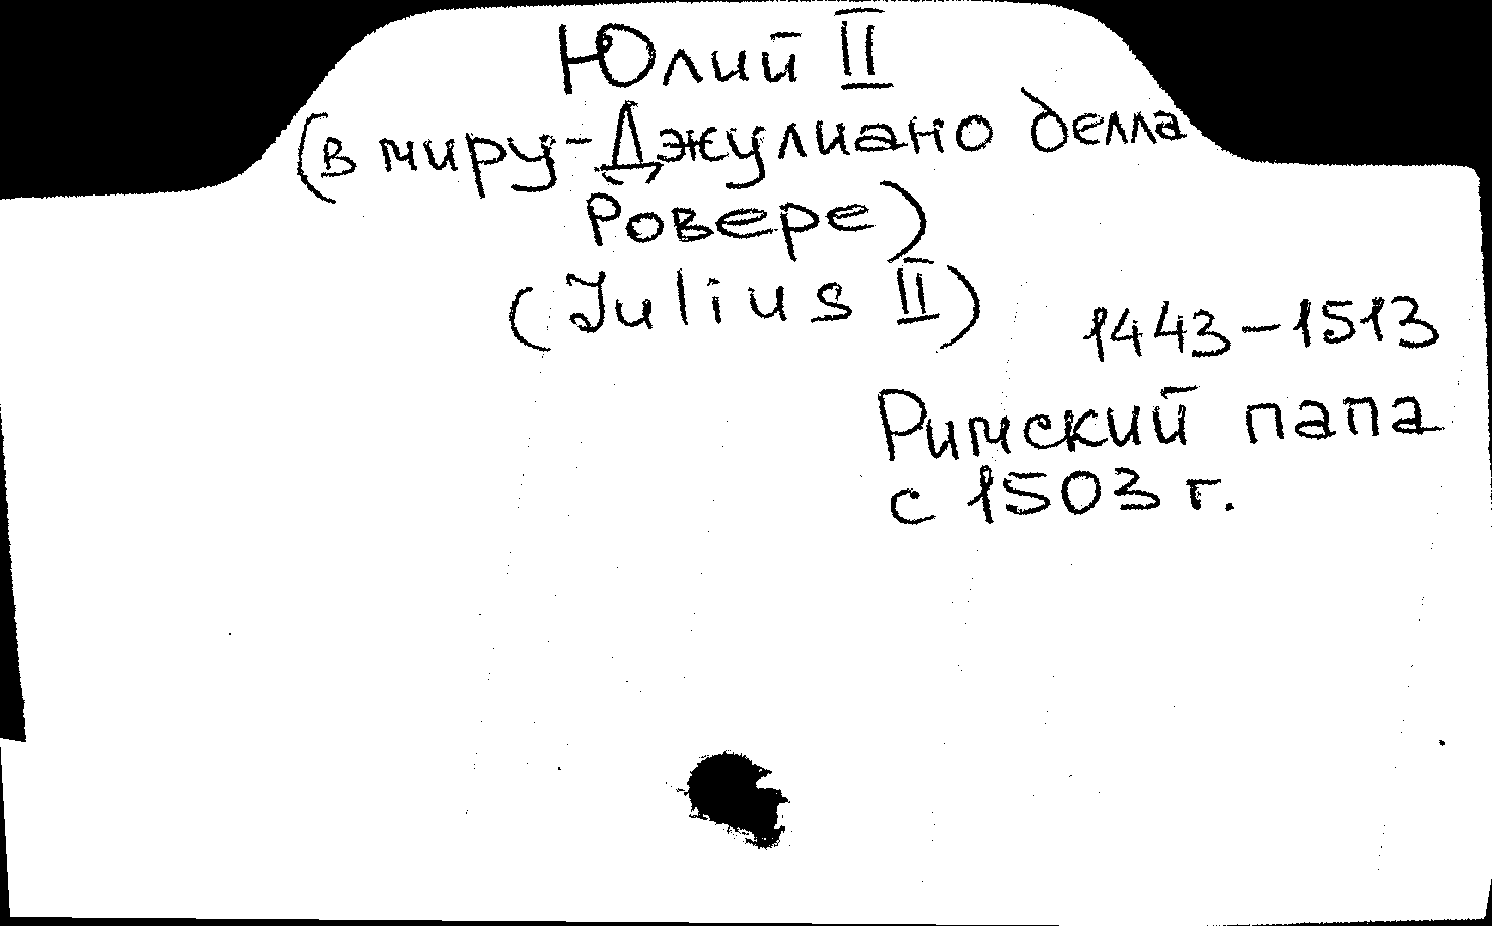 Юлий II
(в миру-Джулиано делла
Ровере)
(Julius II)
1443-1513
Римский папа
с 1503 г.